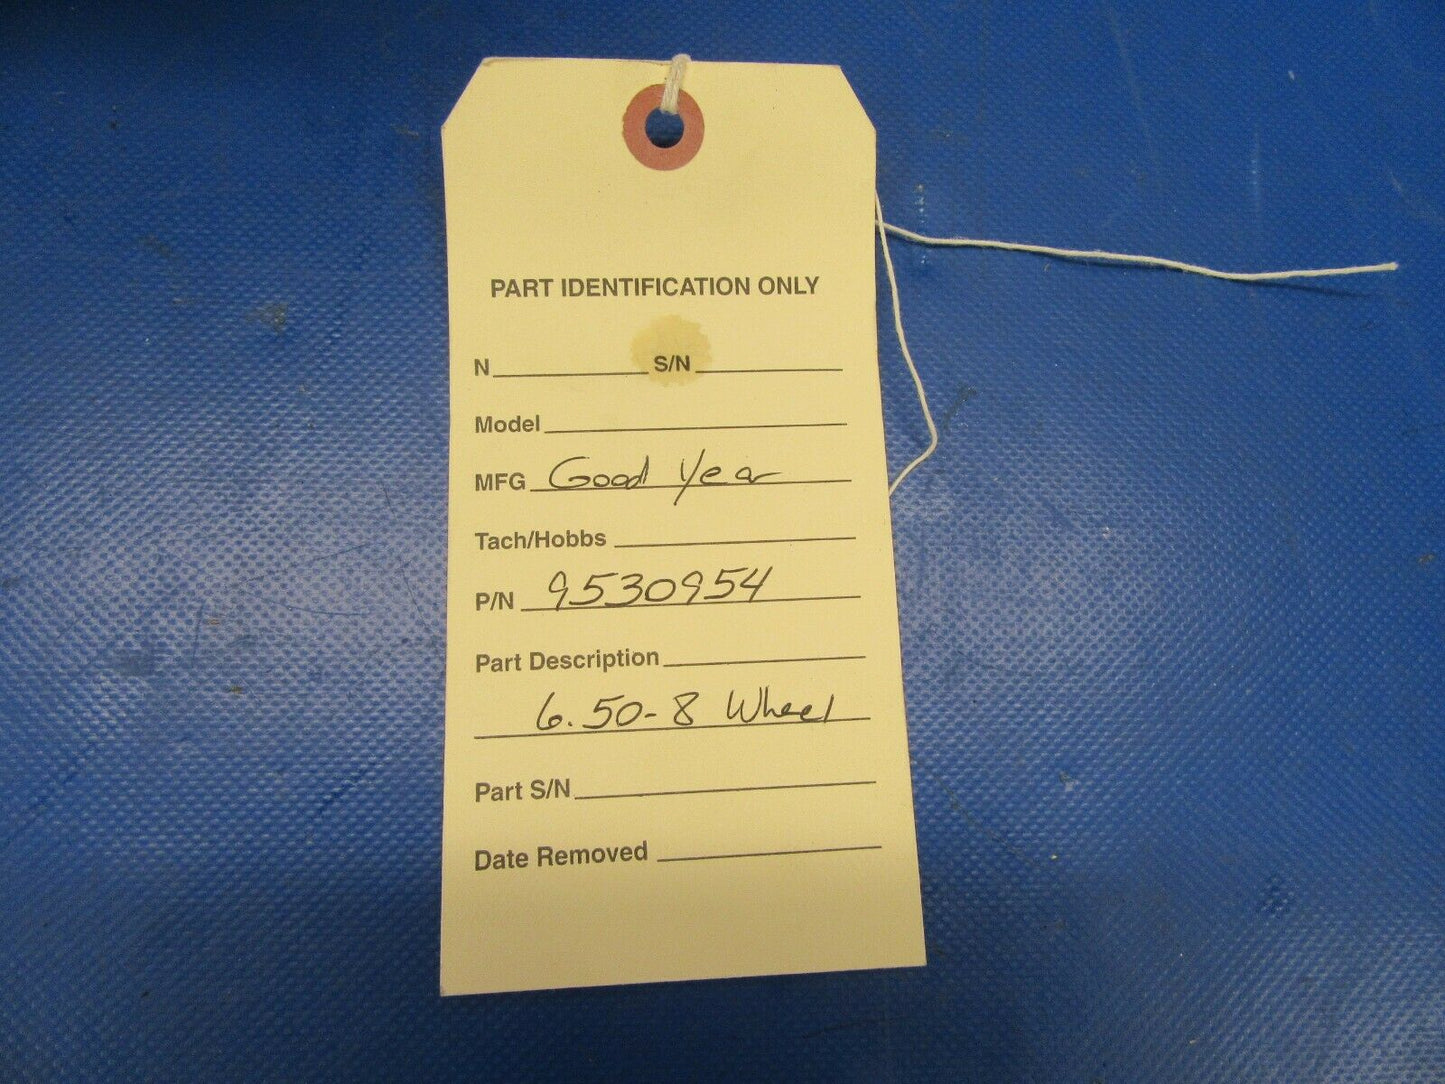 PART IDENTIFICATION ONLY
N S/N
Model
MFG Good Year
Tach/Hobbs
P/N 9530954
Part Description
6.50-8 Wheel
Part S/N
Date Removed